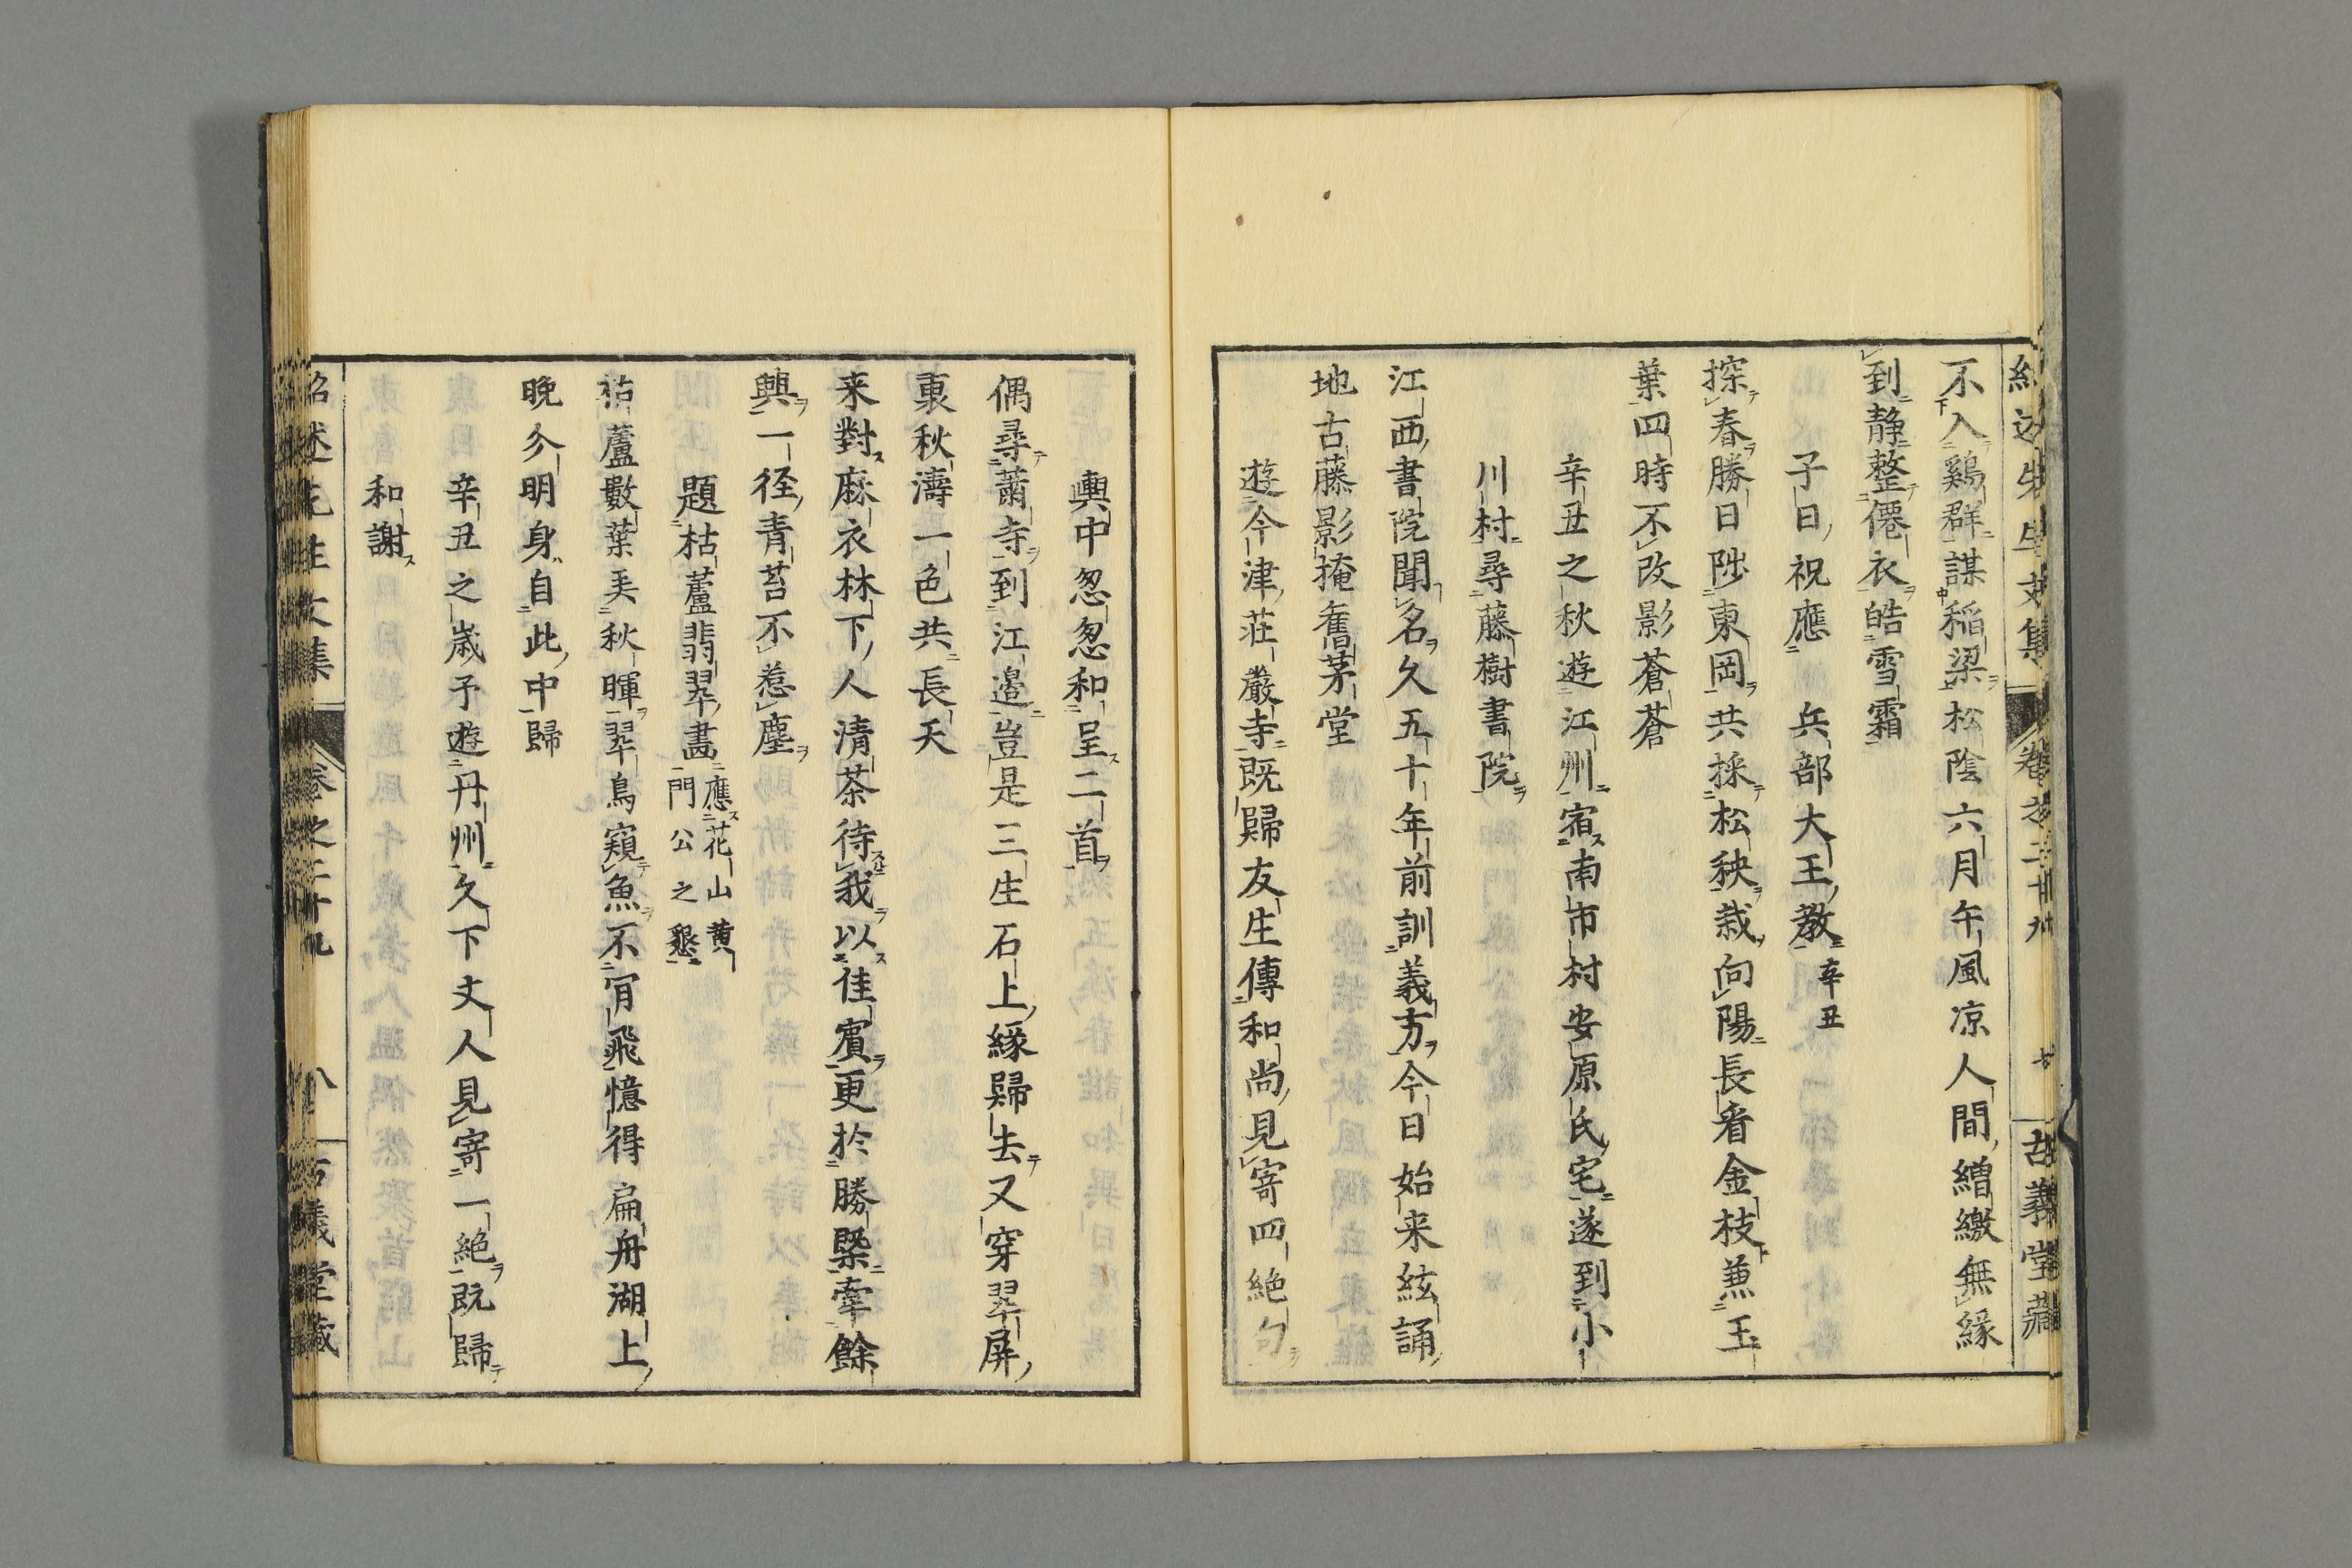 不入鷄群謀稲梁松陰六月午風凉人間繒繳無縁
到静整僊衣皓雪霜
子日祝應　兵部大王教辛丑
探春勝日陟東岡共採松秧栽向陽長看金枝兼玉
葉四時不改影蒼蒼
辛丑之秋遊江州宿南市村安原氏宅遂到小
川村尋藤樹書院
江西書院聞名久五十年前訓義方今日始来絃誦
地古藤影掩舊茅堂
遊今津荘嚴寺既歸友生傳和尚見寄四絶句
輿中怱怱和呈二首
偶尋蕭寺到江邉豈是三生石上縁歸去又穿翠屏
裏秋濤一色共長天
来對麻衣林下人清茶待我以佳賓更於勝槩牽餘
興一径青苔不惹塵
題枯蘆翡翠畫應花山黄
門公之懇
枯蘆數葉美秋暉翠鳥窺魚不肎飛憶得扁舟湖上
晩分明身自此中歸
辛丑之歳予遊丹州久下丈人見寄一絶既歸
和謝
紹述先生文集　卷之二十九　八　古義堂藏